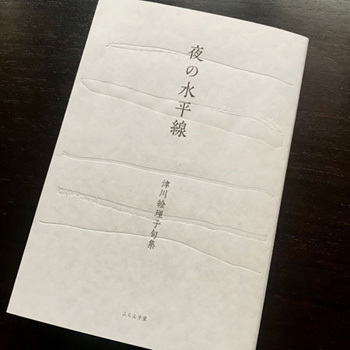 夜の水平線
津川絵理子句集
ふらんす堂